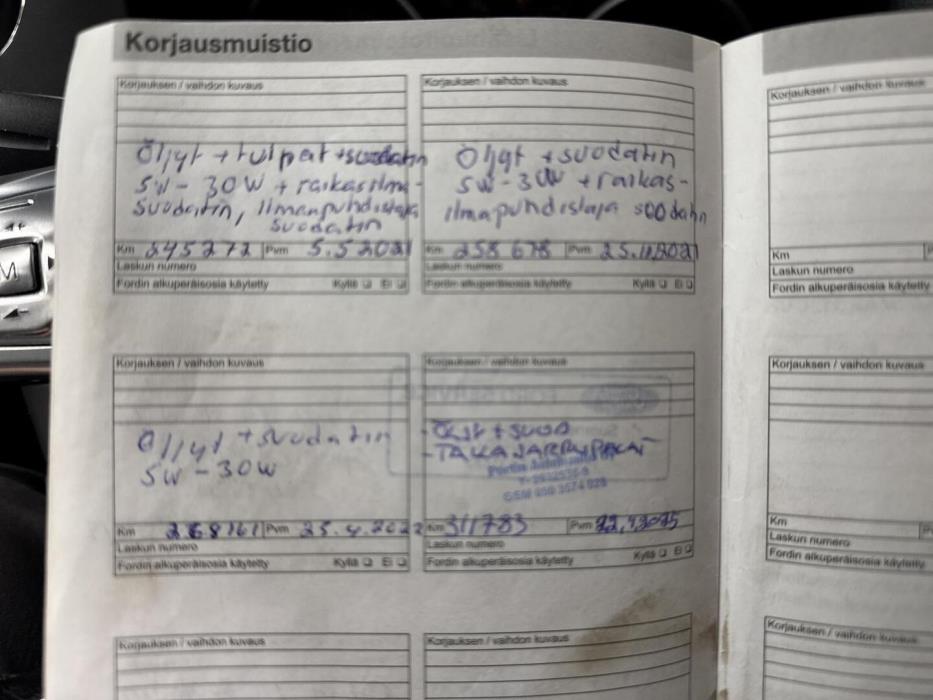 Korjausmuistio
Korjauksen / vaihdon kuvaus
Öljyt + tulpat + suodatin
5W - 30W + raikasilma-
suodatin, ilmanpuhdistaja
suodatin
Km 245272 Pvm 5.5.2021
Laskun numero
Fordin alkuperäisosia käytetty Kyllä Ei
Korjauksen / vaihdon kuvaus
Öljyt + suodatin
5W-30W + raikas-
ilmapuhdistaja suodatin
Km 258 678 Pvm 25.11.2021
Laskun numero
Fordin alkuperäisosia käytetty Kyllä Ei
Korjauksen / vaihdon kuvaus
Öljyt + suodatin
5W - 30W
Km 268161 Pvm 25.4.2022
Laskun numero
Fordin alkuperäisosia käytetty Kyllä Ei
Korjauksen / vaihdon kuvaus
- ÖLJY + SUOD
- TAKAJARRUPALAT
Km 311783 Pvm
Laskun numero
Fordin alkuperäisosia käytetty Kyllä Ei
Korjauksen / vaihdon kuvaus
Korjauksen / vaihdon kuvaus
Korjauksen / vaihdon kuvaus
Km
Laskun numero
Fordin alkuperäisosia käytetty
Korjauksen / vaihdon kuvaus
Km
Laskun numero
Fordin alkuperäisosia käytetty
Korjauksen / vaihdon kuvaus
M